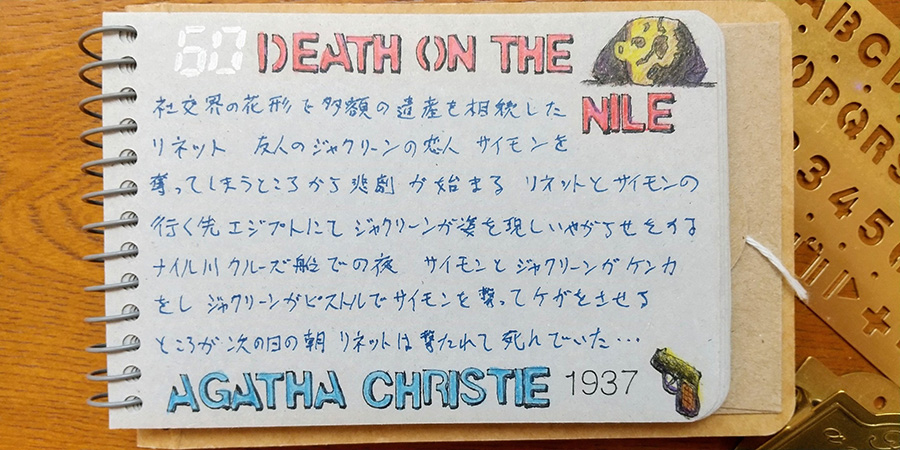 60 DEATH ON THE
NILE
社交界の花形で多額の遺産を相続した
リネット 友人のジャクリーンの恋人 サイモンを
奪ってしまうところから悲劇が始まる リネットとサイモンの
行く先エジプトにてジャクリーンが姿を現しいやがらせをする
ナイル川クルーズ船での夜 サイモンとジャクリーンがケンカ
をし ジャクリーンがピストルでサイモンを撃ってケガをさせる
ところが次の日の朝 リネットは撃たれて死んでいた…
AGATHA CHRISTIE 1937
ABC
OPQRS
345